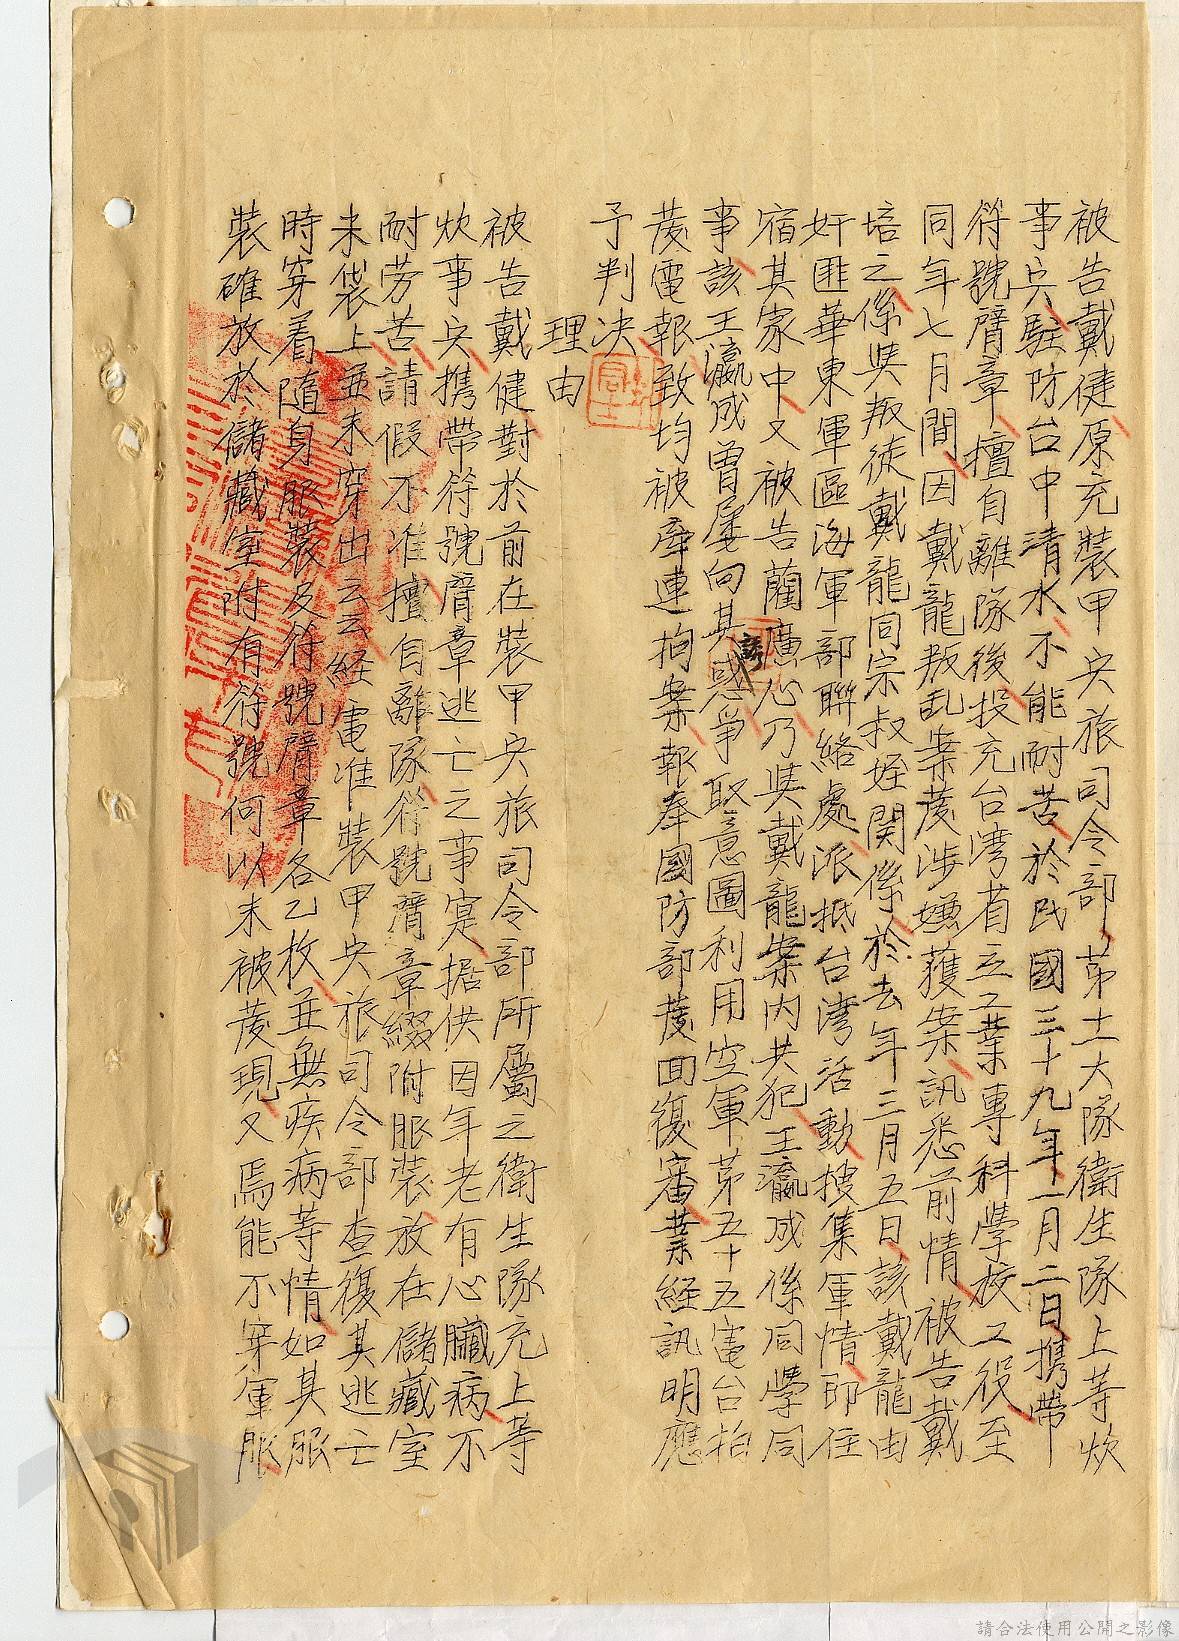 被告戴健原充裝甲兵旅司令部第十大隊衛生隊上等炊
事兵駐防台中清水不能耐苦於民國三十九年一月二日携帶
符號臂章擅自離隊後投充台湾省立工業專科學校工役至
同年七月間因戴龍叛乱案發涉嫌獲案訊悉前情被告戴
培之係與叛徒戴龍同宗叔姪関係於去年三月五日該戴龍由
奸匪華東軍區海軍部聯絡處派抵台湾活動搜集軍情即住
宿其家中又被告藺廣心乃與戴龍案內共犯王瀛成係同學同
事該王瀛成曾屡向其惑爭取意圖利用空軍第五十五電台拍
發電報致均被牽連拘案報奉國防部發回復審業経訊明應
予判决
理由
被告戴健對於前在裝甲兵旅司令部所屬之衛生隊充上等
炊事兵携帶符號臂章逃亡之事寔据供因年老有心臟病不
耐劳苦請假不准擅自離隊符號臂章綴附服裝放在儲藏室
未袋上並未穿出云云経電准裝甲兵旅司令部查復其逃亡
時穿着隨身服裝及符號臂章各乙枚並無疾病等情如其服
裝確放於儲藏室附有符號何以未被發現又焉能不穿軍服
請合法使用公開之影像